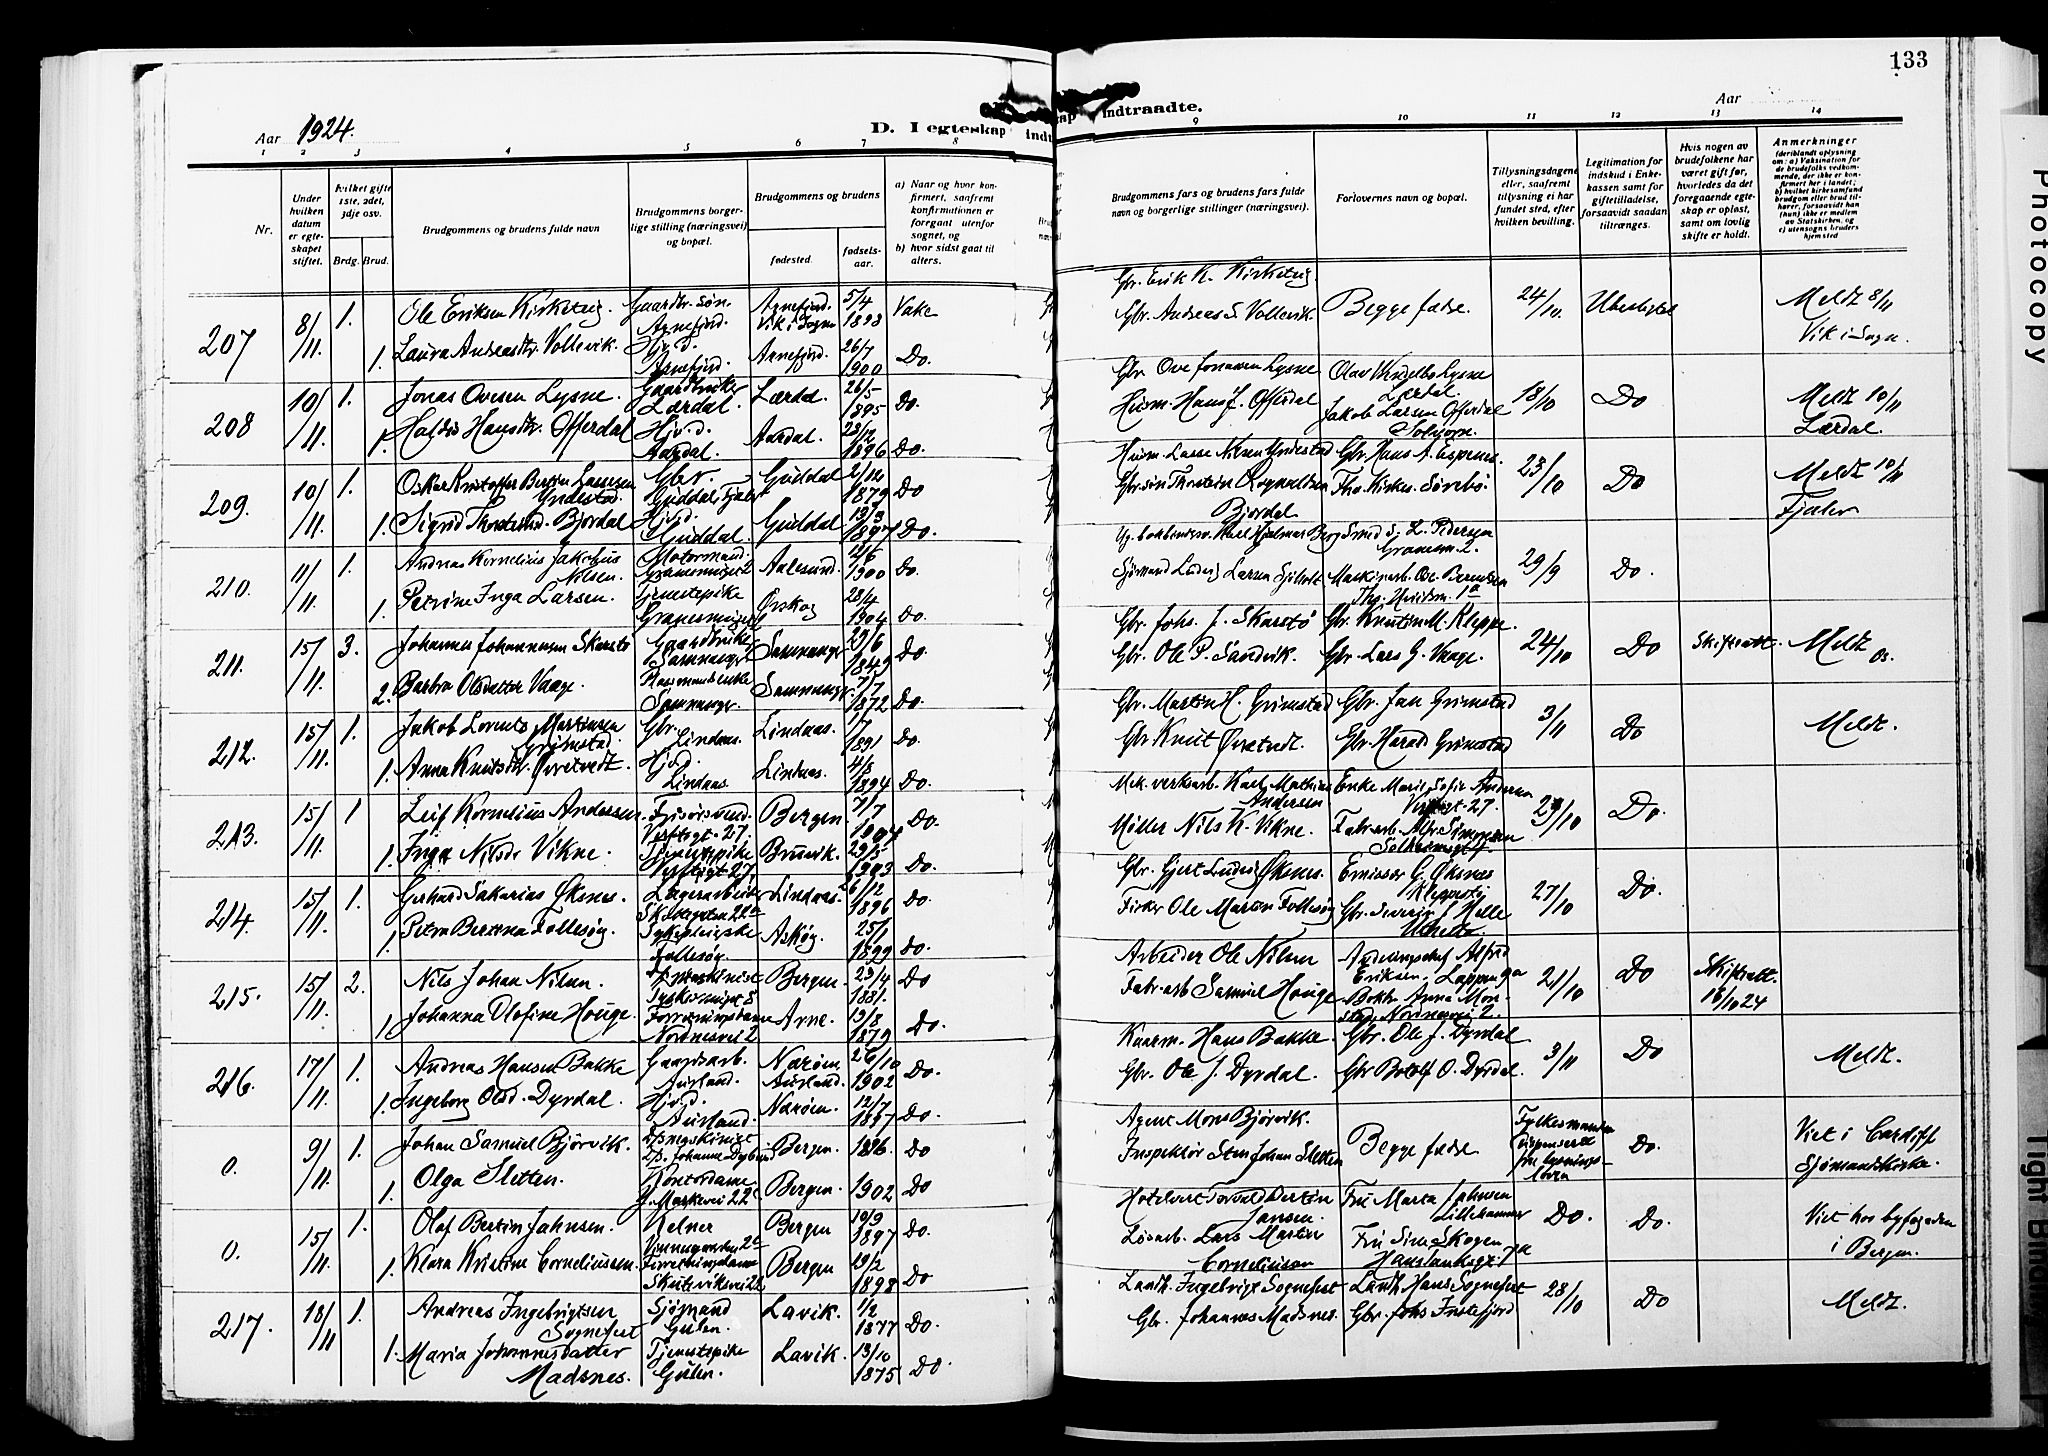 133
Aar 1924.
D. I egteskap indtraadte.
Aar
1 2 3 4 5 6 7 8 9 10 11 12 13 14
Nr.
Under hvilken datum er egteskapet stiftet.
Hvilket gifte 1ste, 2det, 3dje osv.
Brdg. Brud.
Brudgommens og brudens fulde navn
Brudgommens borgerlige stilling (næringsvei) og bopæl.
Brudgommens og brudens
fødested.
fødselsaar.
a) Naar og hvor konfirmert, saafremt konfirmationen er foregaat utenfor sognet, og
b) hvor sidst gaat til alters.
Brudgommens fars og brudens fars fulde navn og borgerlige stillinger (næringsvei).
Forlovernes navn og bopæl.
Tillysningsdagene eller, saafremt tillysning ei har fundet sted, efter hvilken bevilling.
Legitimation for indskud i Enkekassen samt for giftetilladelse, forsaavidt saadan tiltrænges.
Hvis nogen av brudefolkene har været gift før, hvorledes da det foregaaende egteskap er opløst, samt om lovlig skifte er holdt.
Anmerkninger
(deriblandt oplysning om: a) Vaksination for de brudefolks vedkommende, der ikke er konfirmert her i landet; b) hvilket kirkesamfund brudgom eller brud tilhører, forsaavidt han (hun) ikke er medlem av Statskirken, og c) utensogns bruders hjemsted
207 8/11. 1. Ole Eriksen Kirketeig. Gaardbr. søn. Arnefjord. Arnefjord. Vik i Sogn 5/4 1898 Vake
Gbr. Erik K. Kirketeig
1. Laura Andreasdtr. Vollevik. Hj.v.d. Arnefjord. Arnefjord. 26/7 1900 Do.
Gbr. Andreas S. Vollevik. Begge fædre. 24/10. Ubesligtet Meldt 8/11 Vik i Sogn.
208 10/11. 1. Jonas Ovesen Lysne. Gaardbruker Lærdal. Lærdal. 26/5 1895 Do.
Gbr. Ove Jonassen Lysne Lærdal.
1. Haldis Hansdtr. Offerdal Hj.v.d. Aardal. Aardal. 23/12 1896 Do.
Husm. Hans J. Offerdal Jakob Larsen Offerdal Solvorn. 18/10 Do Meldt 10/11 Lærdal.
209. 10/11. 1. Oskar Kristoffer Bertin Lassesen Yndestad. Gbr. Guddal Fjaler Guddal 2/12 1879 Do
Husm. Lasse Nilsen Yndestad Gbr. Hans A. Espenes.
1. Sigrid Thorsteinsd. Bjordal Hj.v.d. Guddal Guddal 13/3 1897 Do.
Bjordal Tho. Kirkes. Sørebø. 23/10 Do Meldt 10/11 Fjaler
210. 11/11. 1. Andreas Kornelius Jakobus Nilsen. Motormand. Aalesund. 12/6 1900 Do.
L. Pedersen
1. Petrine Inga Larsen. Tjenestepike Ørskog 28/4 1904 Do.
Sjømand Ludvig Larsen Maskinarb. Ole Berntsen 29/9 Do.
211. 15/11. 3. Johannes Johannesen Skarstø Gaardbruker Samnanger Samnanger 29/6 1849 Do.
Gbr. Johs. J. Skarstø Gbr. Knut M. Kleppe.
2. Barbra Olsdatter Vaage. Samnanger Samnanger. 7/7 1872 Do.
Gbr. Ole P. Sandvik. Gbr. Lars G. Vaage. 24/10 Do Skifteatt. Meldt Os.
212. 15/11. 1. Jakob Lorents Martinsen Grimstad. Gbr. Lindaas. Lindaas. 1/7 1891 Do.
Gbr. Martin H. Grimstad Gbr. Jan Grimstad
1. Anna Knutsdtr. Øvretvedt. Hj.v.d. Lindaas. Lindaas. 4/8 1894 Do.
Gbr. Knut Øvretvedt. Gbr. Harald Grimstad 3/11 Do Meldt.
213. 15/11. 1 Leif Kornelius Andersen. Frisørsvend. Vestligt. 27. Bergen. 7/7 Do.
Mek. verkarb. Karl Mathias Andersen Enke Marie Sofie Andersen 27.
1. Inga Nilsdr Vikne. Tjenestepike Bruvik. 29/5 1903 Do.
Møller Nils K. Vikne. Fabr.arb. Alfr. Simonsen 29/10 Do.
214. 15/11. 1. Gerhard Sakarias Øksnes. Lagerarbeider Lindaas. 6/12 1896 Do.
Gbr. Gjert Øksnes. Emissær G. Øksnes Kleppestø
1. Petra Bertina Follesøy. Sykepleierske Follesøy. Askøy. 25/1 1899 Do.
Fisker Ole Marion Follesøy Gbr. Severin J. Helle 27/10 Do.
215. 15/11. 2. Nils Johan Nilsen. Bergen. 23/4 1881. Do
Arbeider Ole Nilsen Alfred Eriksen, Lappen 9a
1. Johanna Olofine Houge. Forretningsdame Nordnesvei 2 Arne. 13/8 1879 Do.
Fabr.arb Samuel Houge Bokh. Anna Monstad, Nordnesvei 2. 21/10 Do Skifteatt. 16/10 24
216. 17/11. 1. Andreas Hansen Bakke Gaardsarb. Aurland. Nærøen Aurland. 26/10 1902 Do.
Kaarm. Hans Bakke. Gbr. Ole J. Dyrdal
1. Ingeborg Olsd. Dyrdal. Hj.v.d. Aurland. Nærøen. 12/7 1897 Do.
Gbr. Ole J. Dyrdal. Gbr Botolf O. Dyrdal. 3/11 Do Meldt.
0. 9/11. 1. Johan Samuel Bjørvik. Bergen. 1896. Do
Agent Mons Bjørvik.
1. Olga Sletten. Kontordame J. Markevei 22. Bergen. 1902 Do
Inspektør Sten Johan Sletten Begge fædre Fylkesmanden dispensert fra lysnings- Do. Viet i Cardiff Sjømandskirke.
0. 15/11. 1. Olaf Bertin Jahnsen. Kelner Bergen 10/9 1897 Do.
Hotelvert Torvald Bertin Jansen. Fru Marta Jahnsen Lillehammer
1. Klara Kristine Corneliussen. Forretningsdame Skuteviksvei 22 Bergen 19/2 1898 Do
Løsarb. Lars Martin Corneliussen Fru Sina Skogen Hans Tanksgt. 7a Do. Do. Viet hos byfogden i Bergen.
217. 18/11 1. Andreas Ingebrigtsen Sognefest Sjømand Gulen. Lavik. 1/2 1877 Do.
Landh. Ingebrigt Sognefest Landh. Hans Sognefest
1. Maria Johannesdatter Madsnes. Tjenestepike Gulen. Lavik. 13/10 1875 Do.
Gbr. Johannes Madsnes. Gbr. Johs Instefjord 28/10 Do Meldt.
Photocopy
Tight Bind